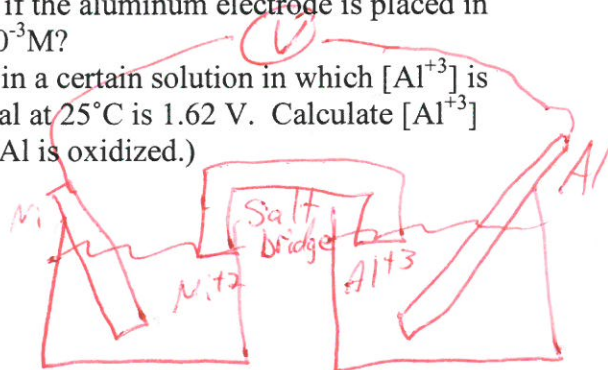 if the aluminum electrode is placed in
0⁻³M?
in a certain solution in which [Al⁺³] is
al at 25°C is 1.62 V. Calculate [Al⁺³]
Al is oxidized.)
V
Ni
Salt
bridge
Al
Ni+2
Al+3